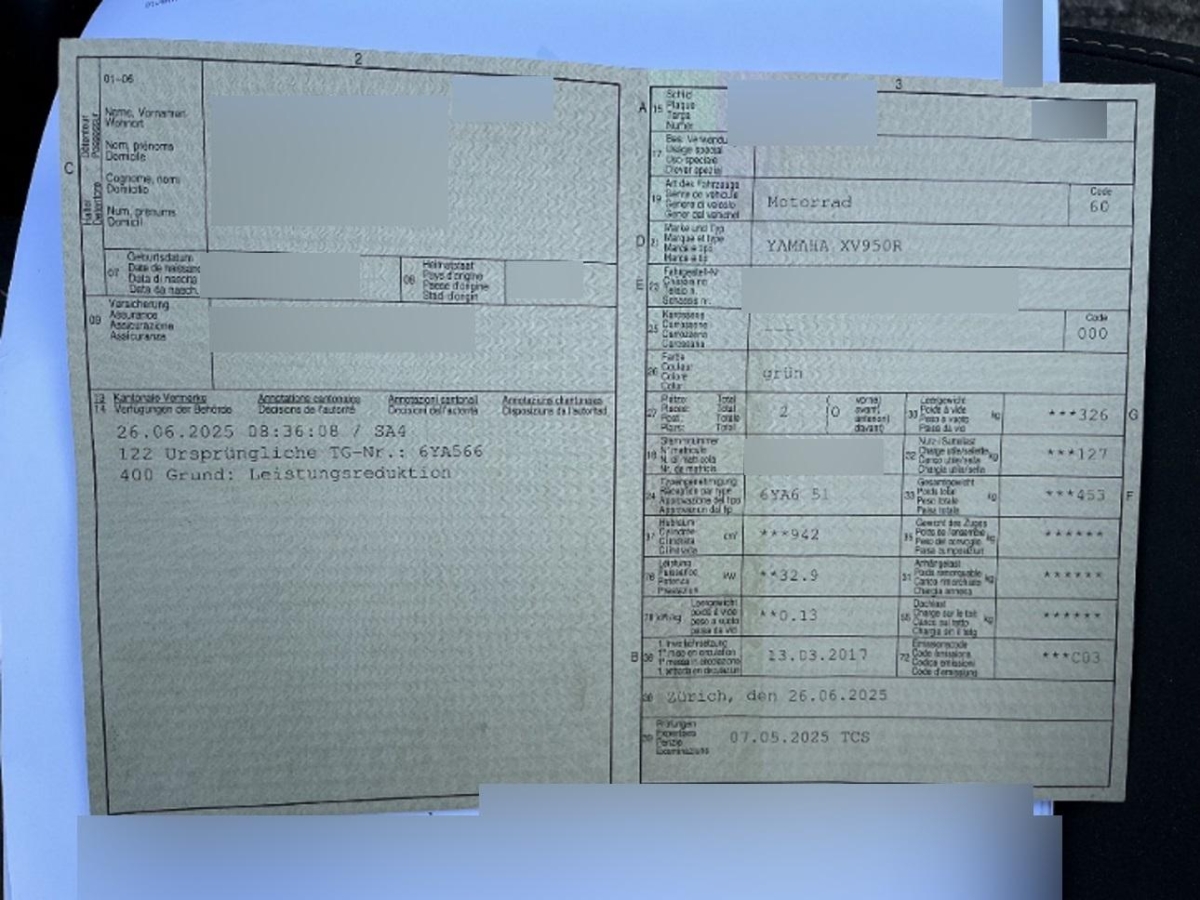 2
01-06
C
Détenteur
Possessur
Halter
Detentore
Name, Vornamen
Wohnort
Nom, prénoms
Domicile
Cognome, nomi
Domicilio
Num, prenums
Domicil
07
Geburtsdatum
Date de naissance
Data di nascita
Data da nasch.
08
Heimatstaat
Pays d'origine
Paese d'origine
Stadi d'origin
09
Versicherung
Assurance
Assicurazione
Assicuranza
13
14
Kantonale Vermerke
Verfügungen der Behörde
Annotations cantonales
Décisions de l'autorité
Annotazioni cantonali
Decisioni dell'autorità
Annotaziuns chantunalas
Disposiziuns da l'autoritad
26.06.2025 08:36:08 / SA4
122 Ursprüngliche TG-Nr.: 6YA566
400 Grund: Leistungsreduktion
3
A 15
Schild
Plaque
Targa
Numer
17
Bes. Verwendu
Usage spécial
Uso speciale
Diever spezial
19
Art des Fahrzeugs
Genre de véhicule
Genere di veicolo
Gener dal vehichel
Motorrad
Code
60
D 21
Marke und Typ
Marque et type
Marca e tipo
Marca e tip
YAMAHA XV950R
E 23
Fahrgestell-Nr
Châssis no
Telaio n.
Schassis nr.
25
Karosserie
Carrosserie
Carrozzeria
Carossaria
---
Code
000
26
Farbe
Couleur
Colore
Colur
grün
27
Plätze: Total
Places: Total
Posti: Totale
Plazs: Total
2
(0
vorne)
avant)
anteriori)
davant)
30
Leergewicht
Poids à vide
Peso a vuoto
Paisa da vid
kg
***326
G
18
Stammnummer
N° matricule
N. di matricola
Nr. da matricla
32
Nutz-/Sattellast
Charge utile/sellette
Carico utile/sella
Chargia utila/sella
kg
***127
24
Typengenehmigung
Réception par type
Approvazione del tipo
Approvaziun dal tip
6YA6 51
33
Gesamtgewicht
Poids total
Peso totale
Paisa totala
kg
***453
F
37
Hubraum
Cylindrée
Cilindrata
Cilindrada
cm³
***942
35
Gewicht des Zuges
Poids de l'ensemble
Peso del convoglio
Paisa cumposiziun
kg
******
76
Leistung
Puissance
Potenza
Prestaziun
kW
**32.9
31
Anhängelast
Poids remorquable
Carico rimorchiato
Chargia annexa
kg
******
78 kW/kg
Leergewicht
poids à vide
peso a vuoto
paisa da vid
**0.13
55
Dachlast
Charge sur le toit
Carico sul tetto
Chargia sin il tetg
kg
******
B 36
1. Inverkehrsetzung
1re mise en circulation
1a messa in circolazione
1. entrada en circulaziun
13.03.2017
72
Emissionscode
Code émissions
Codice emissioni
Code d'emissiun
***C03
38
Zürich, den 26.06.2025
39
Prüfungen
Expertises
Perizie
Examinaziuns
07.05.2025 TCS